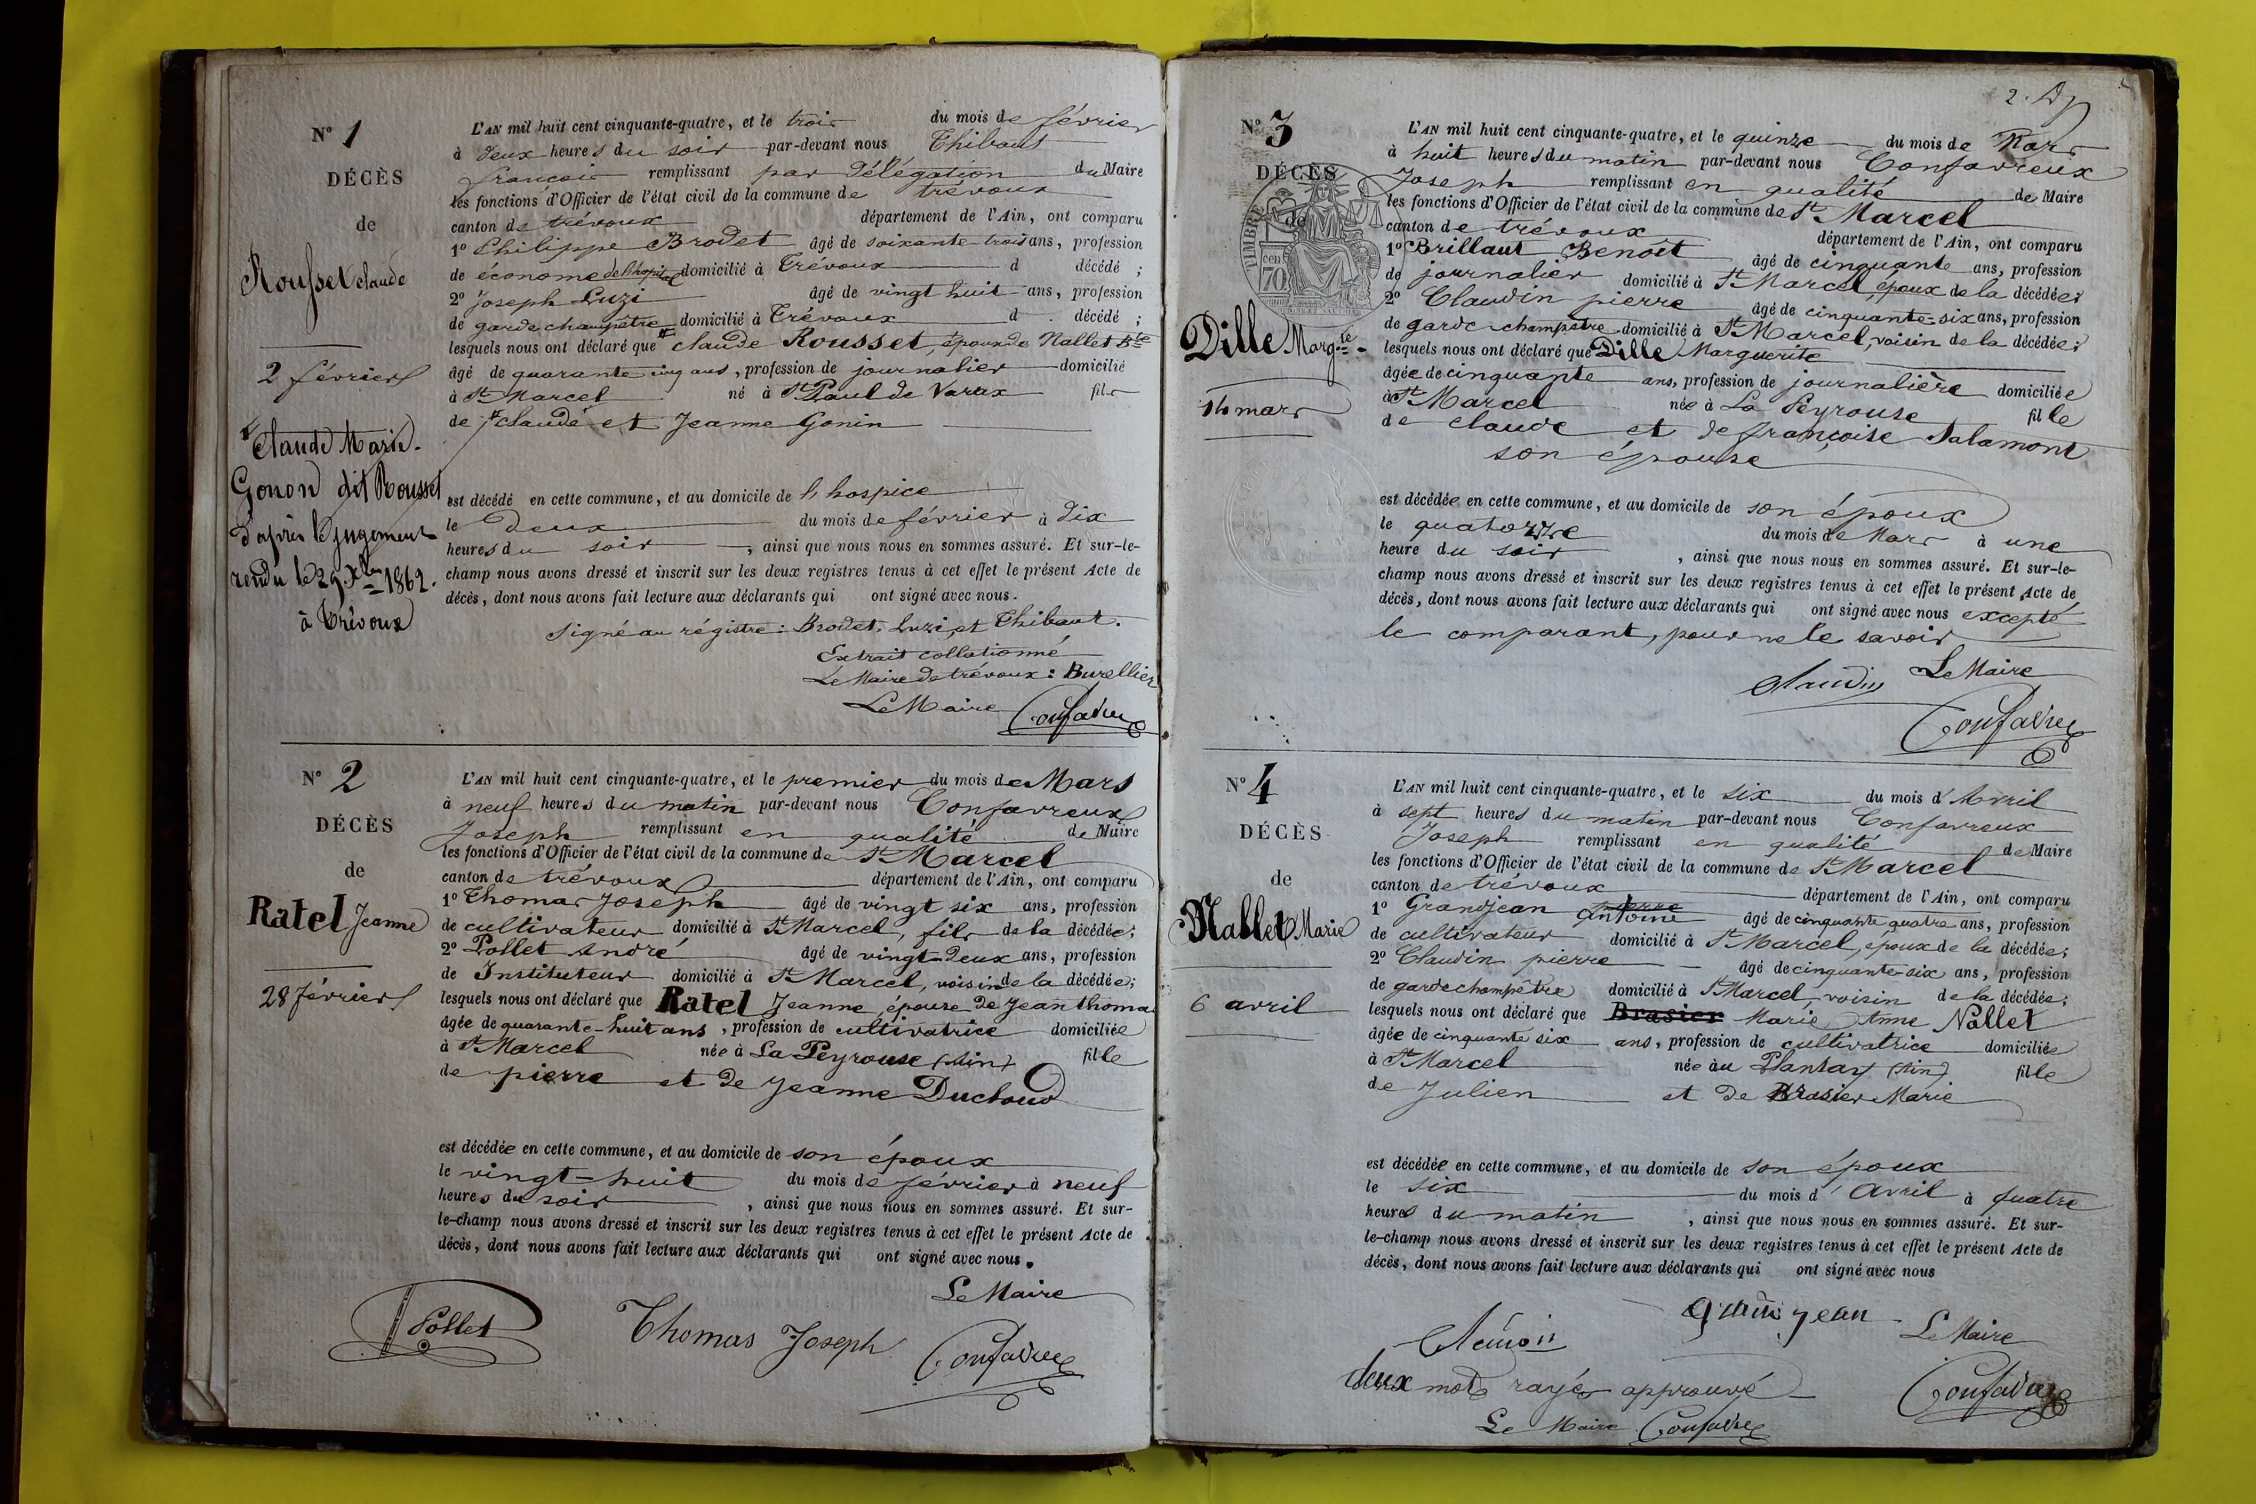 N° 1
DÉCÈS
de
Rousset Claude
2 février
Claude Marie
Gonon dit Rousset
d'après le jugement
rendu le 29 Xbre 1862.
à Trévoux
L'AN mil huit cent cinquante-quatre, et le trois du mois de février
à deux heures du soir par-devant nous Thibaut
françois remplissant par délégation du Maire
les fonctions d'Officier de l'état civil de la commune de trévoux
canton de trévoux département de l'Ain, ont comparu
1° Philippe Brodet âgé de soixante-trois ans, profession
de économe de l'hopital domicilié à Trévoux d décédé ;
2° Joseph Luzi âgé de vingt huit ans, profession
de garde champêtre domicilié à Trévoux d décédé ;
lesquels nous ont déclaré que claude Rousset, époux de Nallet Bte
âgé de quarante cinq ans, profession de journalier domicilié
à St Marcel né à St Paul de Varax fils
de claude et Jeanne Gonin
est décédé en cette commune, et au domicile de l'hospice
le deux du mois de février à dix
heures du soir, ainsi que nous nous en sommes assuré. Et sur-le-
champ nous avons dressé et inscrit sur les deux registres tenus à cet effet le présent Acte de
décès, dont nous avons fait lecture aux déclarants qui ont signé avec nous.
signé au régistre : Brodet, Luzi, et Thibaut.
Extrait collationné
Le Maire de trévoux : Burellier
Le Maire Confavreux
N° 2
DÉCÈS
de
Ratel Jeanne
28 février
L'AN mil huit cent cinquante-quatre, et le premier du mois de Mars
à neuf heures du matin par-devant nous Confavreux
Joseph remplissant en qualité de Maire
les fonctions d'Officier de l'état civil de la commune de St Marcel
canton de trévoux département de l'Ain, ont comparu
1° Thomas Joseph âgé de vingt six ans, profession
de cultivateur domicilié à St Marcel, fils de la décédée ;
2° Pollet André âgé de vingt-deux ans, profession
de Instituteur domicilié à St Marcel, voisin de la décédée ;
lesquels nous ont déclaré que Ratel Jeanne, épouse de Jean thomas
âgée de quarante-huit ans, profession de cultivatrice domiciliée
à St Marcel née à La Peyrouse (Ain) fille
de pierre et de Jeanne Duchoud
est décédée en cette commune, et au domicile de son époux
le vingt-huit du mois de février à neuf
heures du soir, ainsi que nous nous en sommes assuré. Et sur-
le-champ nous avons dressé et inscrit sur les deux registres tenus à cet effet le présent Acte de
décès, dont nous avons fait lecture aux déclarants qui ont signé avec nous.
Le Maire
Pollet Thomas Joseph Confavreux
2.
N° 3
DÉCÈS
de
TIMBRE
70 cen
Dille Margte
14 mars
L'AN mil huit cent cinquante-quatre, et le quinze du mois de Mars
à huit heures du matin par-devant nous Confavreux
Joseph remplissant en qualité de Maire
les fonctions d'Officier de l'état civil de la commune de St Marcel
canton de trévoux département de l'Ain, ont comparu
1° Brillaut Benoît âgé de cinquante ans, profession
de journalier domicilié à St Marcel, époux de la décédée ;
2° Claudin pierre âgé de cinquante-six ans, profession
de garde-champêtre domicilié à St Marcel, voisin de la décédée ;
lesquels nous ont déclaré que Dille Marguerite
âgée de cinquante ans, profession de journalière domiciliée
à St Marcel née à La Peyrouse fille
de claude et de françoise Salamont
son épouse
est décédée en cette commune, et au domicile de son époux
le quatorze du mois de Mars à une
heure du soir, ainsi que nous nous en sommes assuré. Et sur-le-
champ nous avons dressé et inscrit sur les deux registres tenus à cet effet le présent Acte de
décès, dont nous avons fait lecture aux déclarants qui ont signé avec nous excepté
le comparant, pour ne le savoir
Claudin Le Maire
Confavreux
N° 4
DÉCÈS
de
Nallet Marie
6 avril
L'AN mil huit cent cinquante-quatre, et le six du mois d'Avril
à sept heures du matin par-devant nous Confavreux
Joseph remplissant en qualité de Maire
les fonctions d'Officier de l'état civil de la commune de St Marcel
canton de trévoux département de l'Ain, ont comparu
1° Grandjean pierre Antoine âgé de cinquante quatre ans, profession
de cultivateur domicilié à St Marcel, époux de la décédée ;
2° Claudin pierre âgé de cinquante-six ans, profession
de garde champêtre domicilié à St Marcel, voisin de la décédée ;
lesquels nous ont déclaré que Brasier Marie Anne Nallet
âgée de cinquante six ans, profession de cultivatrice domiciliée
à St Marcel née au Plantay (Ain) fille
de Julien et de Brasier Marie
est décédée en cette commune, et au domicile de son époux
le six du mois d'Avril à quatre
heures du matin, ainsi que nous nous en sommes assuré. Et sur-
le-champ nous avons dressé et inscrit sur les deux registres tenus à cet effet le présent Acte de
décès, dont nous avons fait lecture aux déclarants qui ont signé avec nous
grandjean
Le Maire
deux mots rayés approuvé Confavreux
Le Maire Confavreux